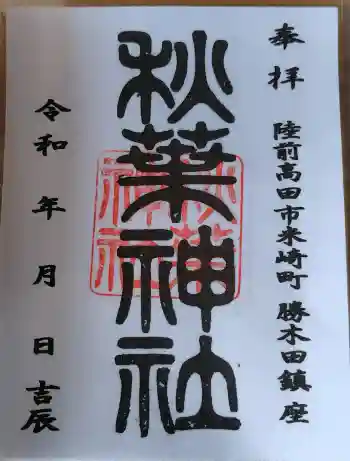 奉拝
陸前高田市米崎町 勝木田鎮座
秋葉神社
秋葉神社
令和 年 月 日 吉辰